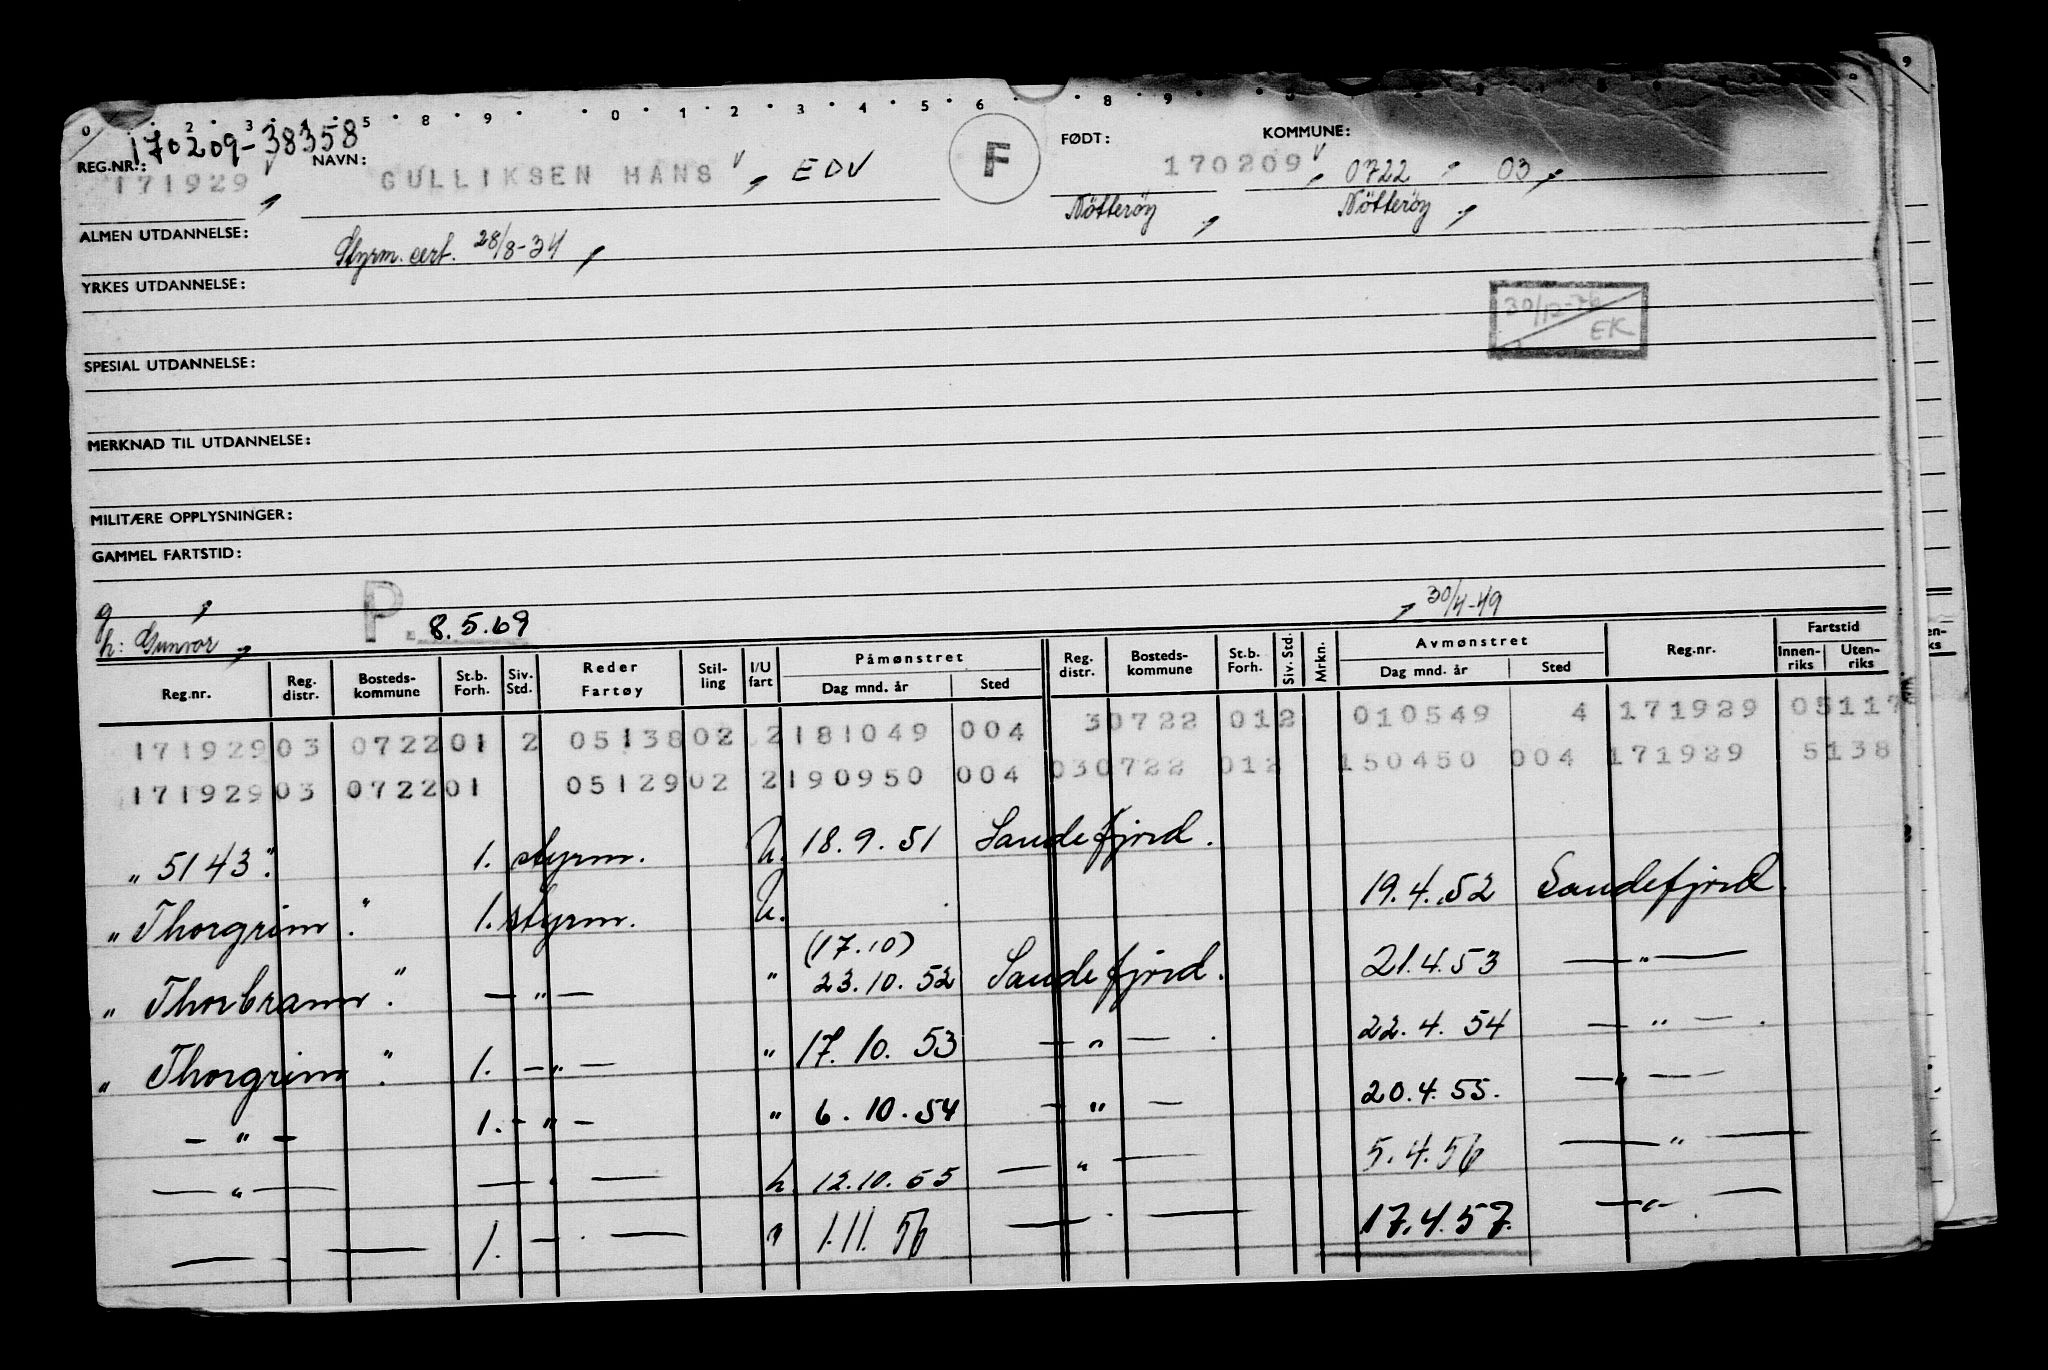 0 2 3 5 8 9 0 1 2 3 4 5 6 8 9
170209-38358
REG.NR.: NAVN: FØDT: KOMMUNE:
171929 GULLIKSEN HANS EDV F 170209 0722 03
Nötteröy Nötteröy
ALMEN UTDANNELSE:
Styrm. cert. 28/8-34
YRKES UTDANNELSE:
EK
SPESIAL UTDANNELSE:
MERKNAD TIL UTDANNELSE:
MILITÆRE OPPLYSNINGER:
GAMMEL FARTSTID:
g P. 8.5.69 30/4-49
h: Gunvor
Reg.nr. Reg. distr. Bosteds-kommune St.b. Forh. Siv. Std. Reder Fartøy Stil-ling I/U fart Påmønstret Dag mnd. år Sted Reg. distr. Bosteds-kommune St.b. Forh. Siv. Std. Mrkn. Avmønstret Dag mnd. år Sted Reg.nr. Fartstid Innen-riks Uten-riks
30722 012 010549 4 171929 05117
171929 03 0722 01 2 05138 02 2 181049 004 030722 012 150450 004 171929 5138
171929 03 0722 01 05129 02 2 190950 004
"5143". 1. styrm. U. 18.9.51 Sandefjord.
"Thorgrim". 1. styrm. U. 19.4.52 Sandefjord.
(17.10)
"Thorbrann". — " — " 23.10.52 Sandefjord. 21.4.53 — " —
"Thorgrim". 1. — " — " 17.10.53 — " — . 22.4.54 — " — .
— " — 1. — " — " 6.10.54 — " — 20.4.55. — " —
— " — — " — U. 12.10.55 — " — 5.4.56 — " —
— " — 1. — " — " 1.11.56 — " — 17.4.57. — " —